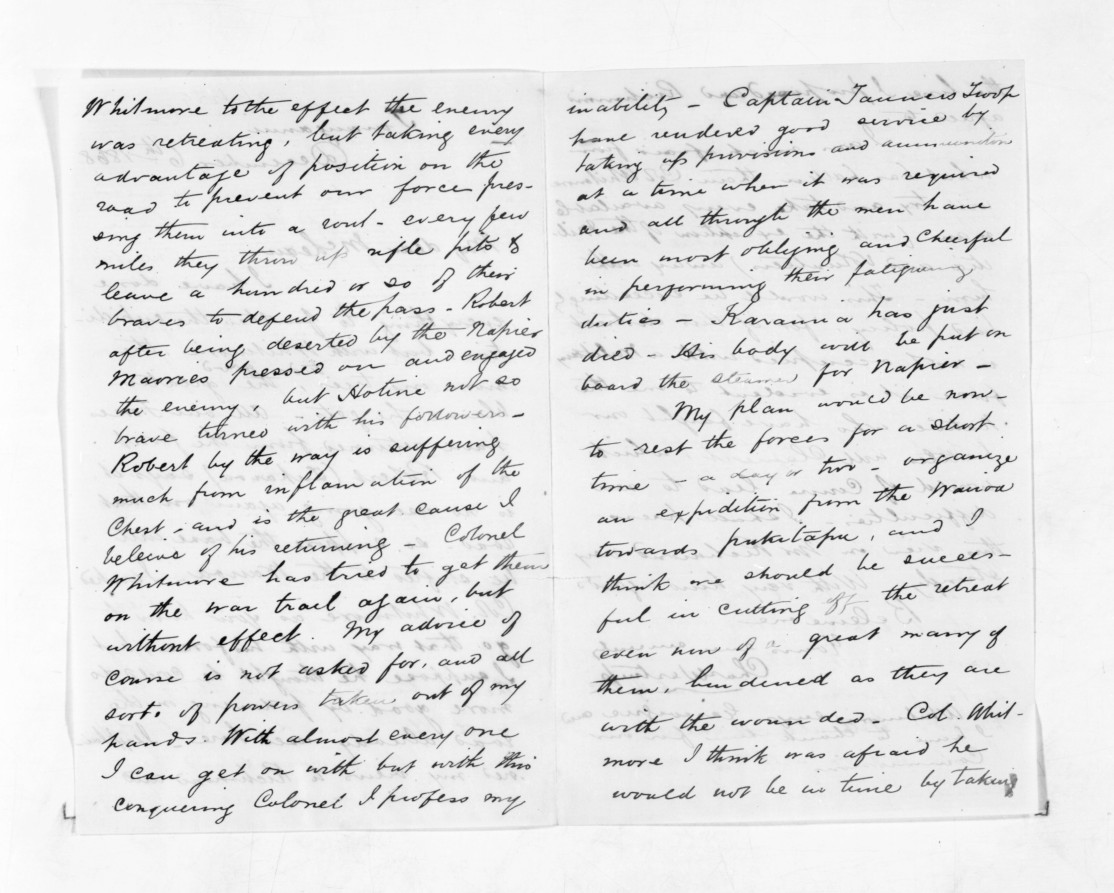 Whitmore to the effect the enemy
was retreating, but taking every
advantage of position on the
road to prevent our force pres-
sing them into a rout - every few
miles they throw up rifle pits &
leave a hundred or so of their
braves to defend the pass - Robert
after being deserted by the Napier
Maories pressed on and engaged
the enemy, but Hotine not so
brave turned with his followers -
Robert by the way is suffering
much from inflamation of the
Chest, and is the great cause I
beleive of his returning - Colonel
Whitmore has tried to get them
on the war trail again, but
without effect. My advice of
course is not asked for, and all
sorts of powers taken out of my
hands With almost every one
I can get on with but with this
conquering Colonel I profess my
inability - Captain Tanners Troop
have rendered good service by
taking up provisions and ammunition
at a time when it was required
and all through the men have
been most obliging and Cheerful
in performing their fatiguing
duties - Karauria has just
died - His body will be put on
board the steamer for Napier -
My plan would be now -
to rest the forces for a short
time - a day or two - organize
an expedition from the Wairoa
towards pukitapu, and I
think we should be success-
ful in cutting off the retreat
even now of a great many of
them, hindered as they are
with the wounded - Col. Whit-
more I think was afraid he
would not be in time by taking